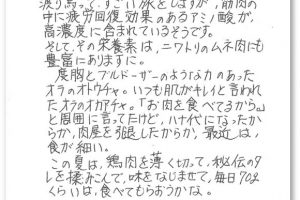 渡り鳥って、すごい旅をしますが、筋肉の
中に疲労回復効果のあるアミノ酸が、
高濃度に含まれているそうです。
そして、その栄養素は、ニワトリのムネ肉にも
豊富にありますに。
度胸とブルドーザーのようなカのあった
オラのオトウチャ。いつも肌がキレイと言われ
たオラのオカアチャ。「お肉を食べてるから。」
と周囲に言ってたけど、八十代になったか
らか、肉屋を引退したからか、最近は、
食が細い。
この夏は、鶏肉を薄く切って、秘伝のタ
レを揉みこんで、味をなじませて、毎日70g
くらいは、食べてもらおうかな。